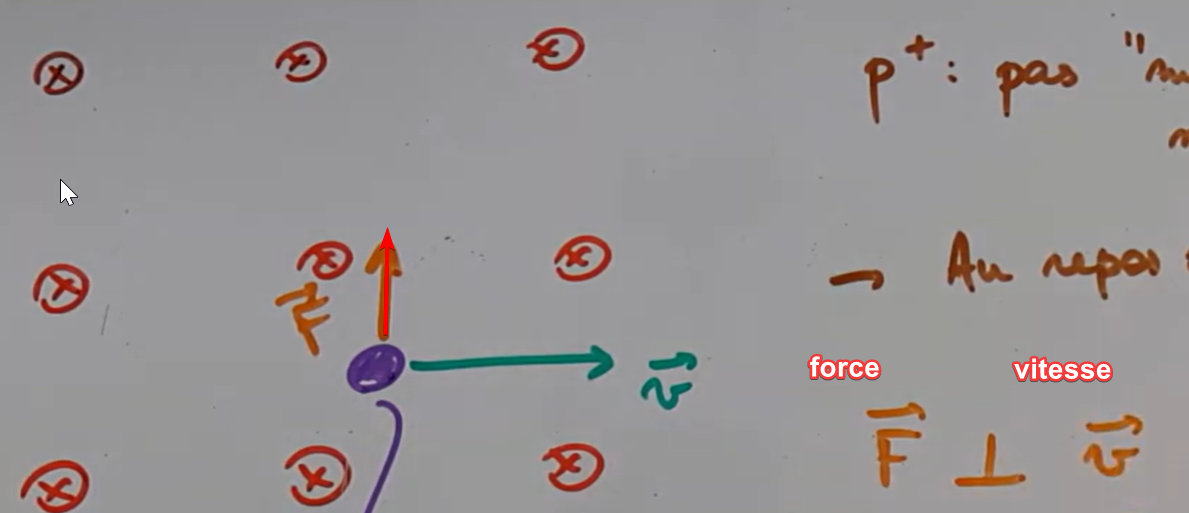 p⁺ : pas
→ Au repos
F⃗
v⃗
force vitesse
F⃗ ⊥ v⃗